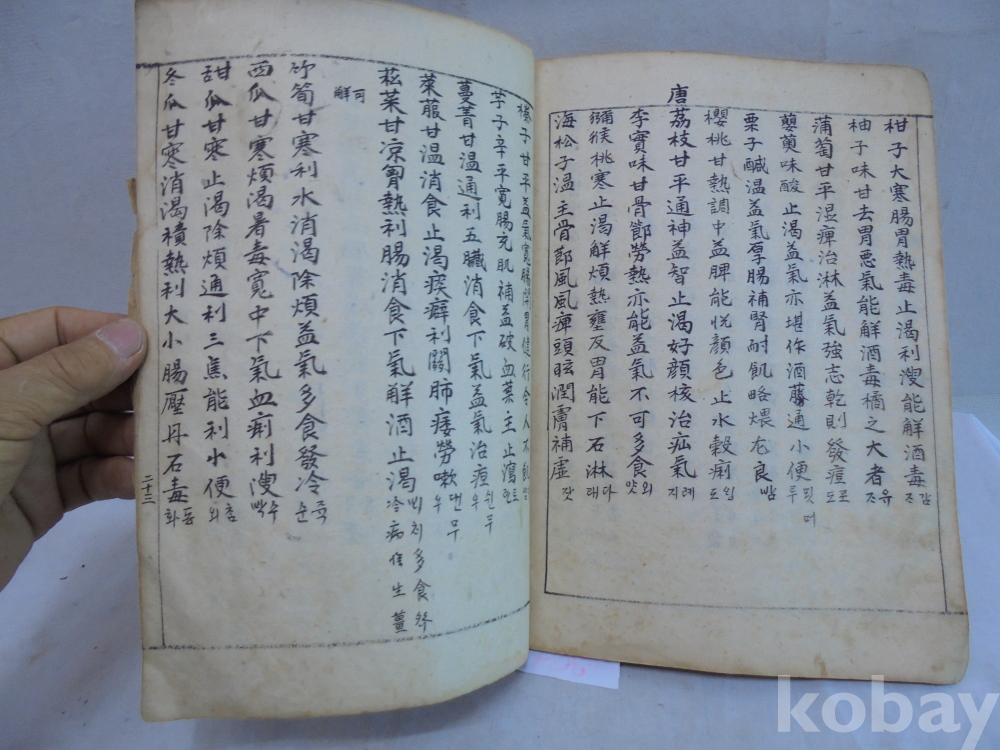 柑子大寒腸胃熱毒止渴利溲能解酒毒 감ᄌᆞ
柚子味甘去胃惡氣能解酒毒橘之大者 유ᄌᆞ
蒲萄甘平湿痺治淋益氣強志乾則發痘 포도
蘡薁味酸止渴益氣亦堪作酒藤通小便 멋
栗子醎温益氣厚腸補腎耐飢略煨尤良 밤
櫻桃甘熱調中益脾能悦顔色止水榖痢 잉도
唐荔枝甘平通神益智止渴好顔核治疝氣 례지
李實味甘骨節勞熱亦能益氣不可多食 외얏
獼猴桃寒止渴解煩熱壅反胃能下石淋 다래
海松子温主骨節風風痺頭眩潤膚補虛 잣
榛子甘平益氣寬腸開胃健行令人不飢
芋子辛平寬腸充肌補益破血葉主止瀉 토란
蔓菁甘温通利五臟消食下氣益氣治疸 쉰무우
萊菔甘温消食止渴痰癖利關肺痿勞嗽 댄무우
菘菜甘凉宵熱利腸消食下氣解酒止渴 多食冷病 生薑可解
竹筍甘寒利水消渴除煩益氣多食發冷 죽순
西瓜甘寒煩渴暑毒寬中下氣血痢利溲 수박
甜瓜甘寒止渴除煩通利三焦能利小便 참외
冬瓜甘寒消渴積熱利大小腸壓丹石毒 동화
二十三
kobay